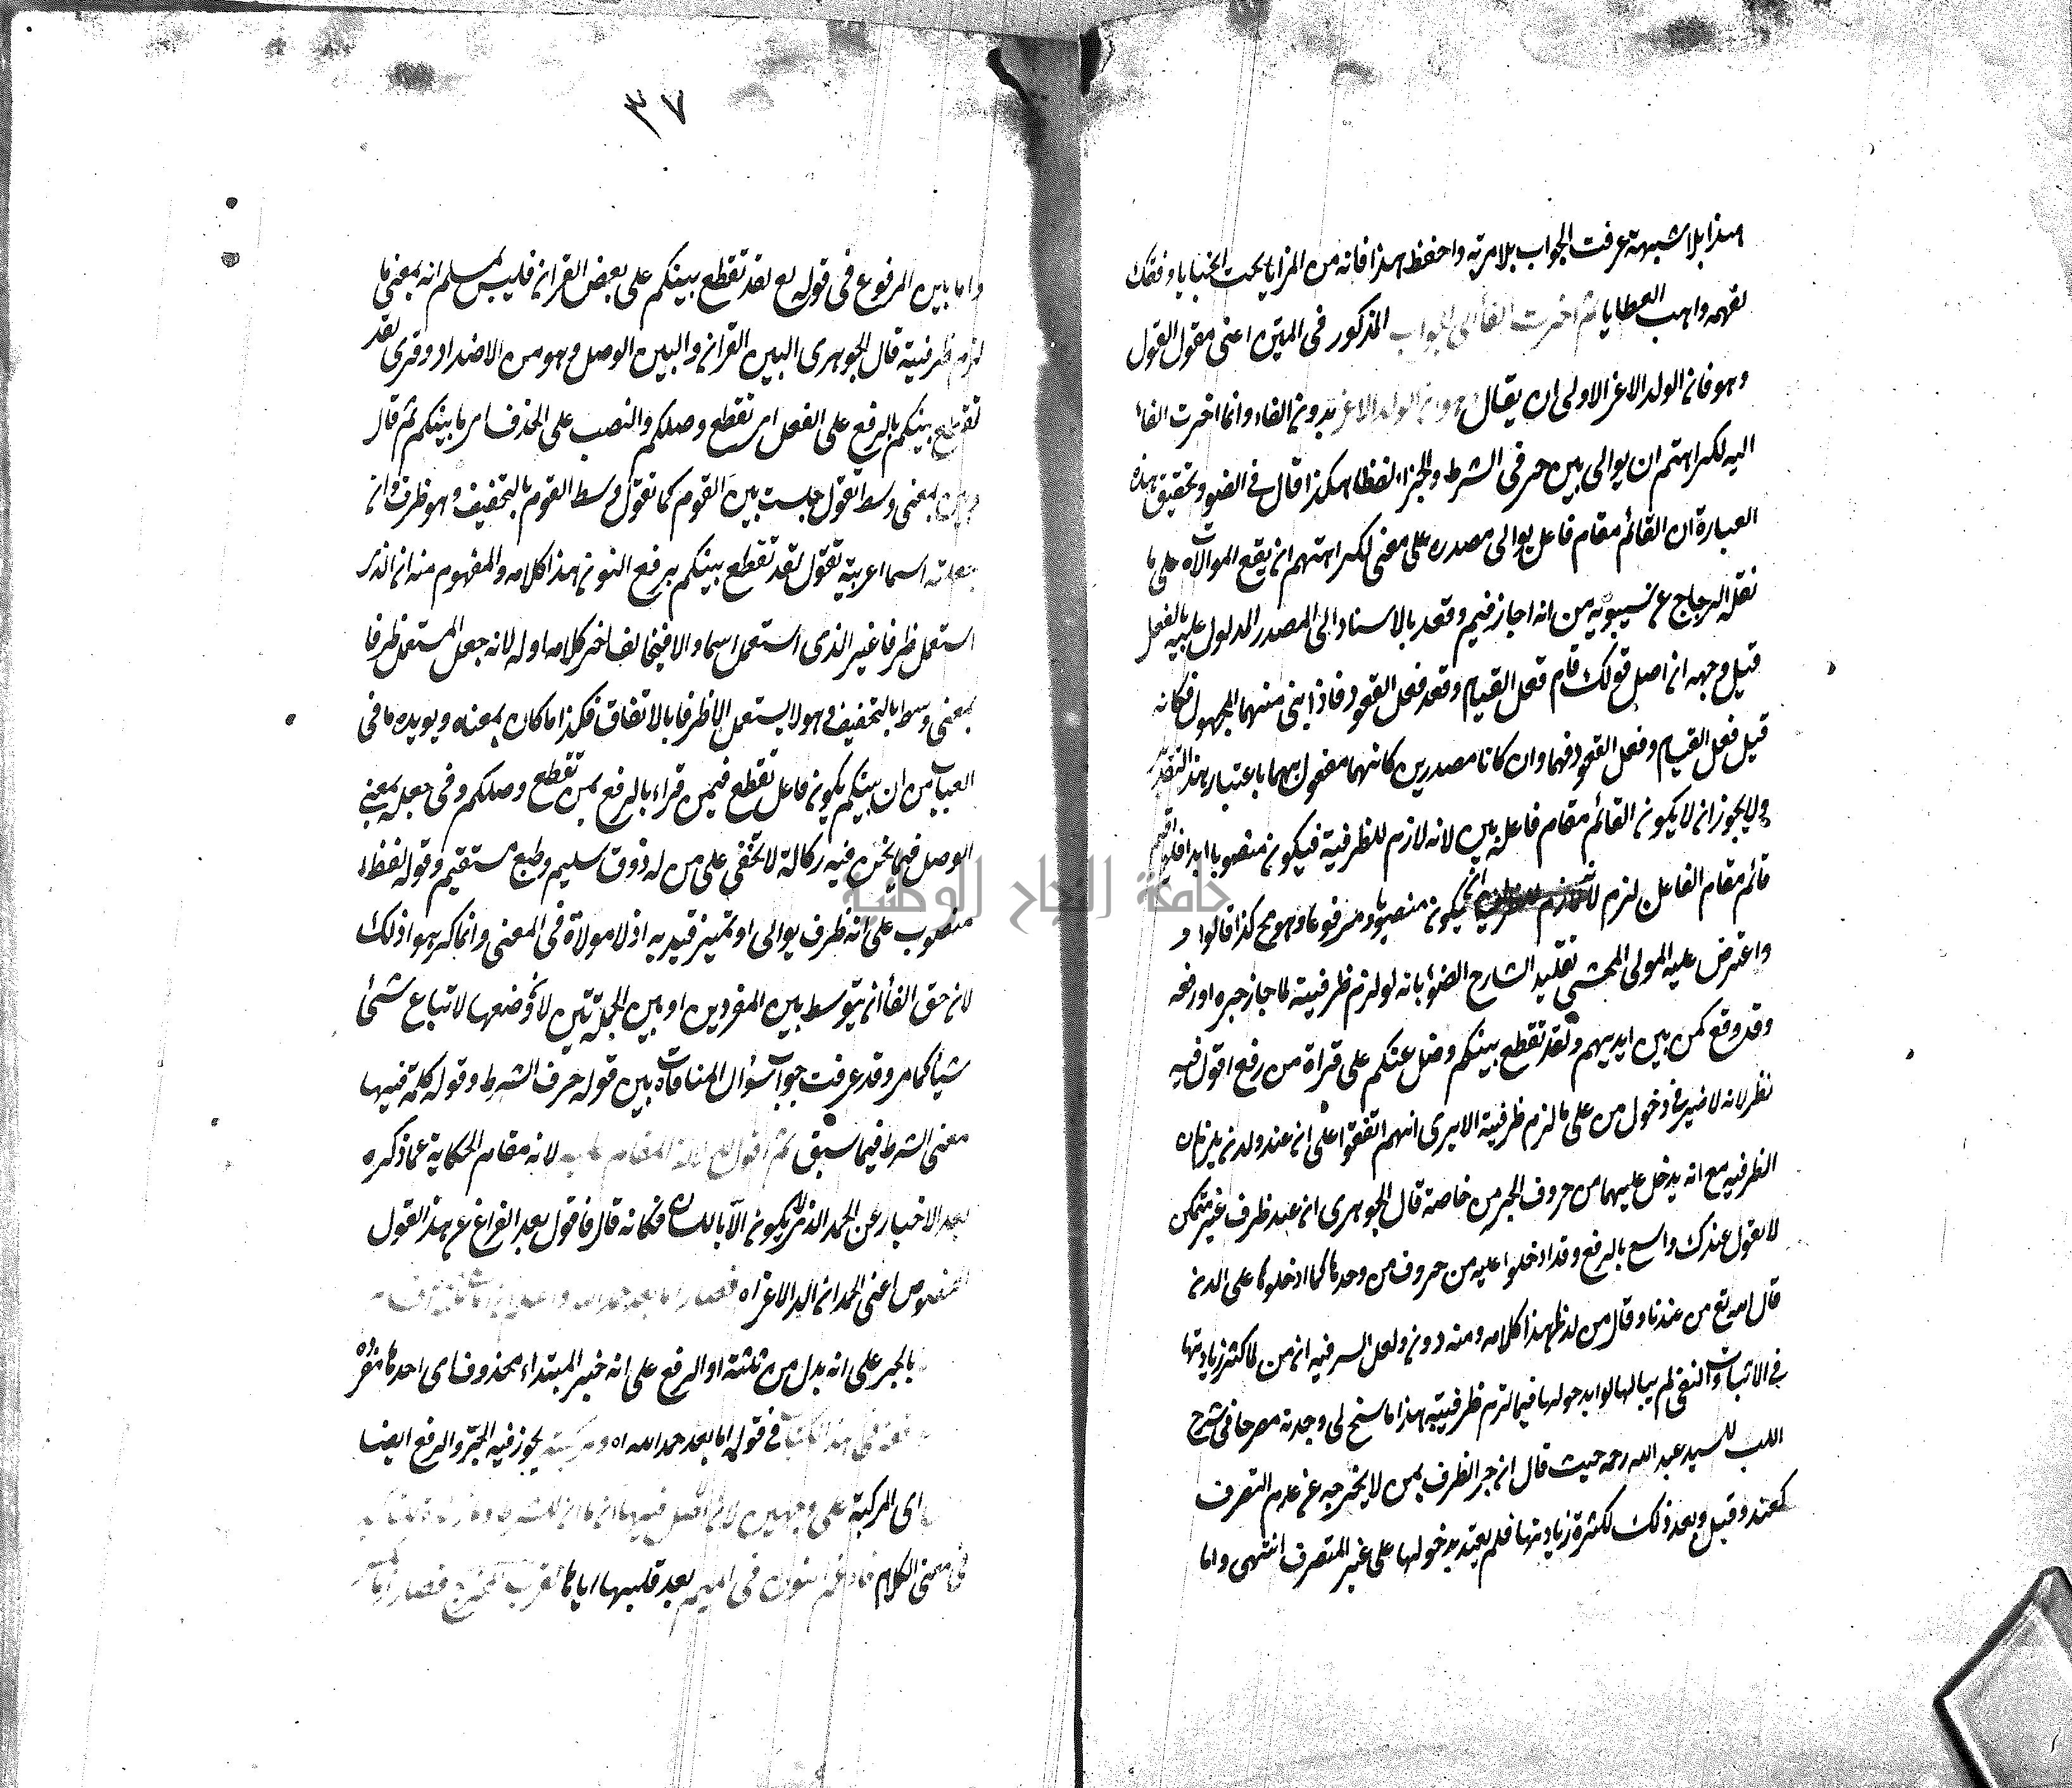 هذا بلا شبهة عرفت الجواب بلا مرية واحفظ هذا فانه من المزايا تحت الخبايا وفقك
لفهمه واهب العطايا ثم اخرت الفاء الى الجواب المذكور في المتن اعنى مقول القول
وهو فان الولد الاعز الاولى ان يقال وهو ان الولد الاعز بدون الفاء وانما اخرت الفاء
اليه لكراهتهم ان يوالى بين حرفى الشرط والجزاء لفظا هكذا قال في الضوء وتحقيق هذه
العبارة ان القائم مقام فاعل يوالى مصدره على معنى لكراهتهم ان يقع الموالاة على ما
نقل الزجاج عن سيبويه من انه اجاز قيم وقعد بالاسناد الى المصدر المدلول عليه بالفعل
قيل وجهه ان اصل قولك قام فعل القيام وقعد فعل القعود فاذا بنى منهما المجهول فكانه
قيل فعل القيام وفعل القعود فهما وان كانا مصدرين كانهما مفعول بهما باعتبار هذا التقدير
ولا يجوز ان لا يكون القائم مقام فاعله بين لانه لازم للظرفية فيكون منصوبا ابدا فلو اقيم
قائم مقام الفاعل لزم ان يكون منصوبا ومرفوعا وهو مح كذا قالوا و
واعترض عليه المولى المحشى تقليد الشارح الضوء بانه لو لزم ظرفيته لما جاز جره او رفعه
وقد وقع كمن بين ايديهم ولقد تقطع بينكم وضل عنكم على قراة من رفع اقول فيه
نظر لانه لا ضير في دخول من على ما لزم ظرفية الا يرى انهم اتفقوا على ان عند ولدن يلزمان
الظرفيه مع انه يدخل عليهما من حروف الجر من خاصة قال الجوهرى ان عند ظرف غير متمكن
لا تقول عندك واسع بالرفع وقد ادخلوا عليه من حروف من وحدها كما ادخلوها على لدن
قال الله تع من عندنا وقال من لدنا هذا كلامه ومنه دون ولعل السر فيه ان من لما كثر زيادتها
في الاثبات والنفى لم يبالوا بدخولها فيما لزم ظرفيته هذا ما سنح لى وجدته مصرحا فى شرح
اللب للسيد عبد الله رحمه حيث قال ان جر الظرف بمن لا يخرجه عن عدم التصرف
كعند وقبل وبعد ذلك لكثرة زيادتها فلم يعتد بدخولها على غير المتصرف انتهى واما
٣٧
واما بين المرفوع فى قوله تع لقد تقطع بينكم على بعض القران فليس بمسلم انه بمعنى ما
لزم ظرفية قال الجوهرى البين الفراق والبين الوصل وهو من الاضداد وقرى لقد
تقطع بينكم بالرفع على الفعل اى تقطع وصلكم والنصب على الحذف اى ما بينكم ثم قال
وبين بمعنى وسط تقول جلست بين القوم كما تقول وسط القوم بالتخفيف وهو ظرف وان
جعلته اسما اعربته تقول لقد تقطع بينكم برفع النون هذا كلامه والمفهوم منه ان الذى
استعمل ظرفا غير الذى استعمل اسما والا فيخالف اخر كلامه اوله لانه جعل المستعمل ظرفا
بمعنى وسط بالتخفيف وهو لا يستعمل الا ظرفا بالاتفاق فكذا ما كان بمعناه ويويده ما فى
العباب من ان بينكم يكون فاعل تقطع فيمن قراء بالرفع بمن تقطع وصلكم وفى جعله بمعنى
الوصل فيما نحن فيه ركاكة لا تخفى على من له ذوق سليم وطبع مستقيم وقوله لفظا
منصوب على انه ظرف يوالى او تميز قيد به اذ لا موالاة فى المعنى وانما كرهوا ذلك
لان حق الفاء ان يتوسط بين المفردين او بين الجملتين لا وضعها لاتباع شئ
شيأ كما مر وقد عرفت جواب سؤال المنافات بين قوله حرف الشرط وقوله كلمة فيها
معنى الشرط فيما سبق ثم اقول لان المقام عليه لانه مقام الحكاية عما ذكره
بعد الاخبار عن الحمد الذى لا يكون الا باللسان فكانه قال فاقول بعد الفراغ عن هذا القول
اعنى الحمد ان الولد الاعز اه فصار اما بعد حمد الله
بالجر على انه بدل من ثلثة او الرفع على انه خبر المبتداء محذوف اى احدها مفرده
فى هذا الكتاب في قوله اما بعد حمد الله اه ومركبته يجوز فيه الجر والرفع ايضا
اى المركبة على وجهين لان اصل
فى معنى الكلام فادغم النون فى الميم بعد قلبها اياها لقرب المخرج فصار اما